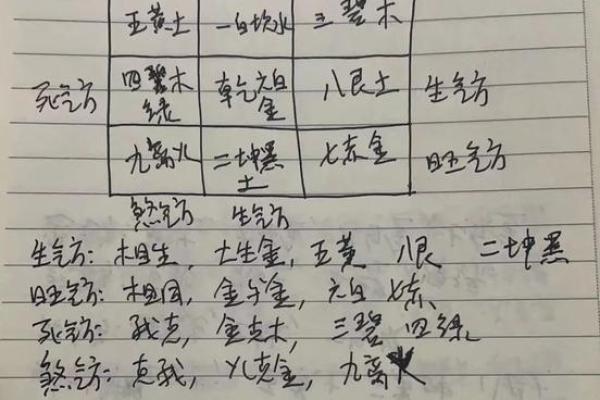 五黄土 一白坎水 三碧木
死气方 四碧木 乾六白 八艮土 生气方
绿 金
九离火 二坤黑 七赤金 旺气方
土
煞气方 生气方
生气方: 相生, 土生金, 五黄 八艮 二坤黑
旺气方: 相同, 金与金, 六白 七赤
死气方: 我克, 金克木, 三碧 四绿
煞气方: 克我, 火克金, 九离火